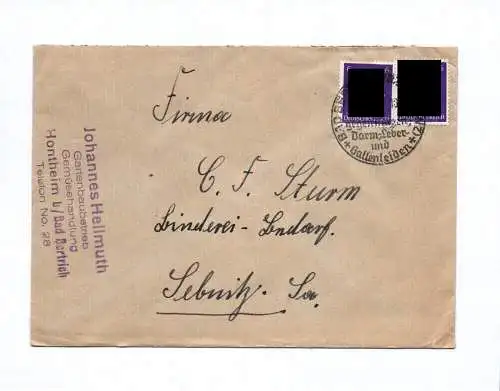 Johannes Hellmuth
Gartenbaubetrieb
Gemüsehandlung
Hontheim b/ Bad Bertrich
Telefon No. 28
Firma
C. F. Sturm
Binderei-Bedarf.
Sebnitz. Sa.
Darm-, Leber-
und
Gallenleiden